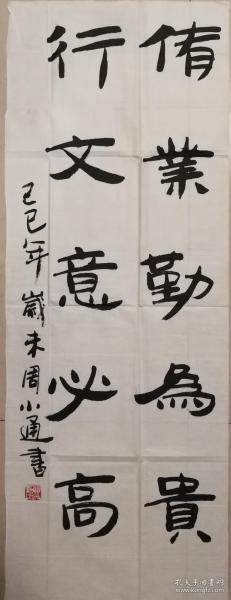 脩業勤為貴
行文意必高
己巳年歲末周小通書
孔夫子旧书网
www.kongfz.com